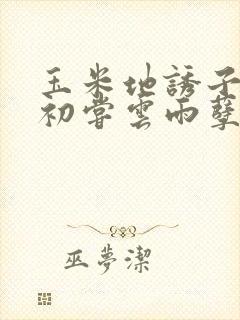 玉米地誘子
初嘗雲雨孽
巫夢潔